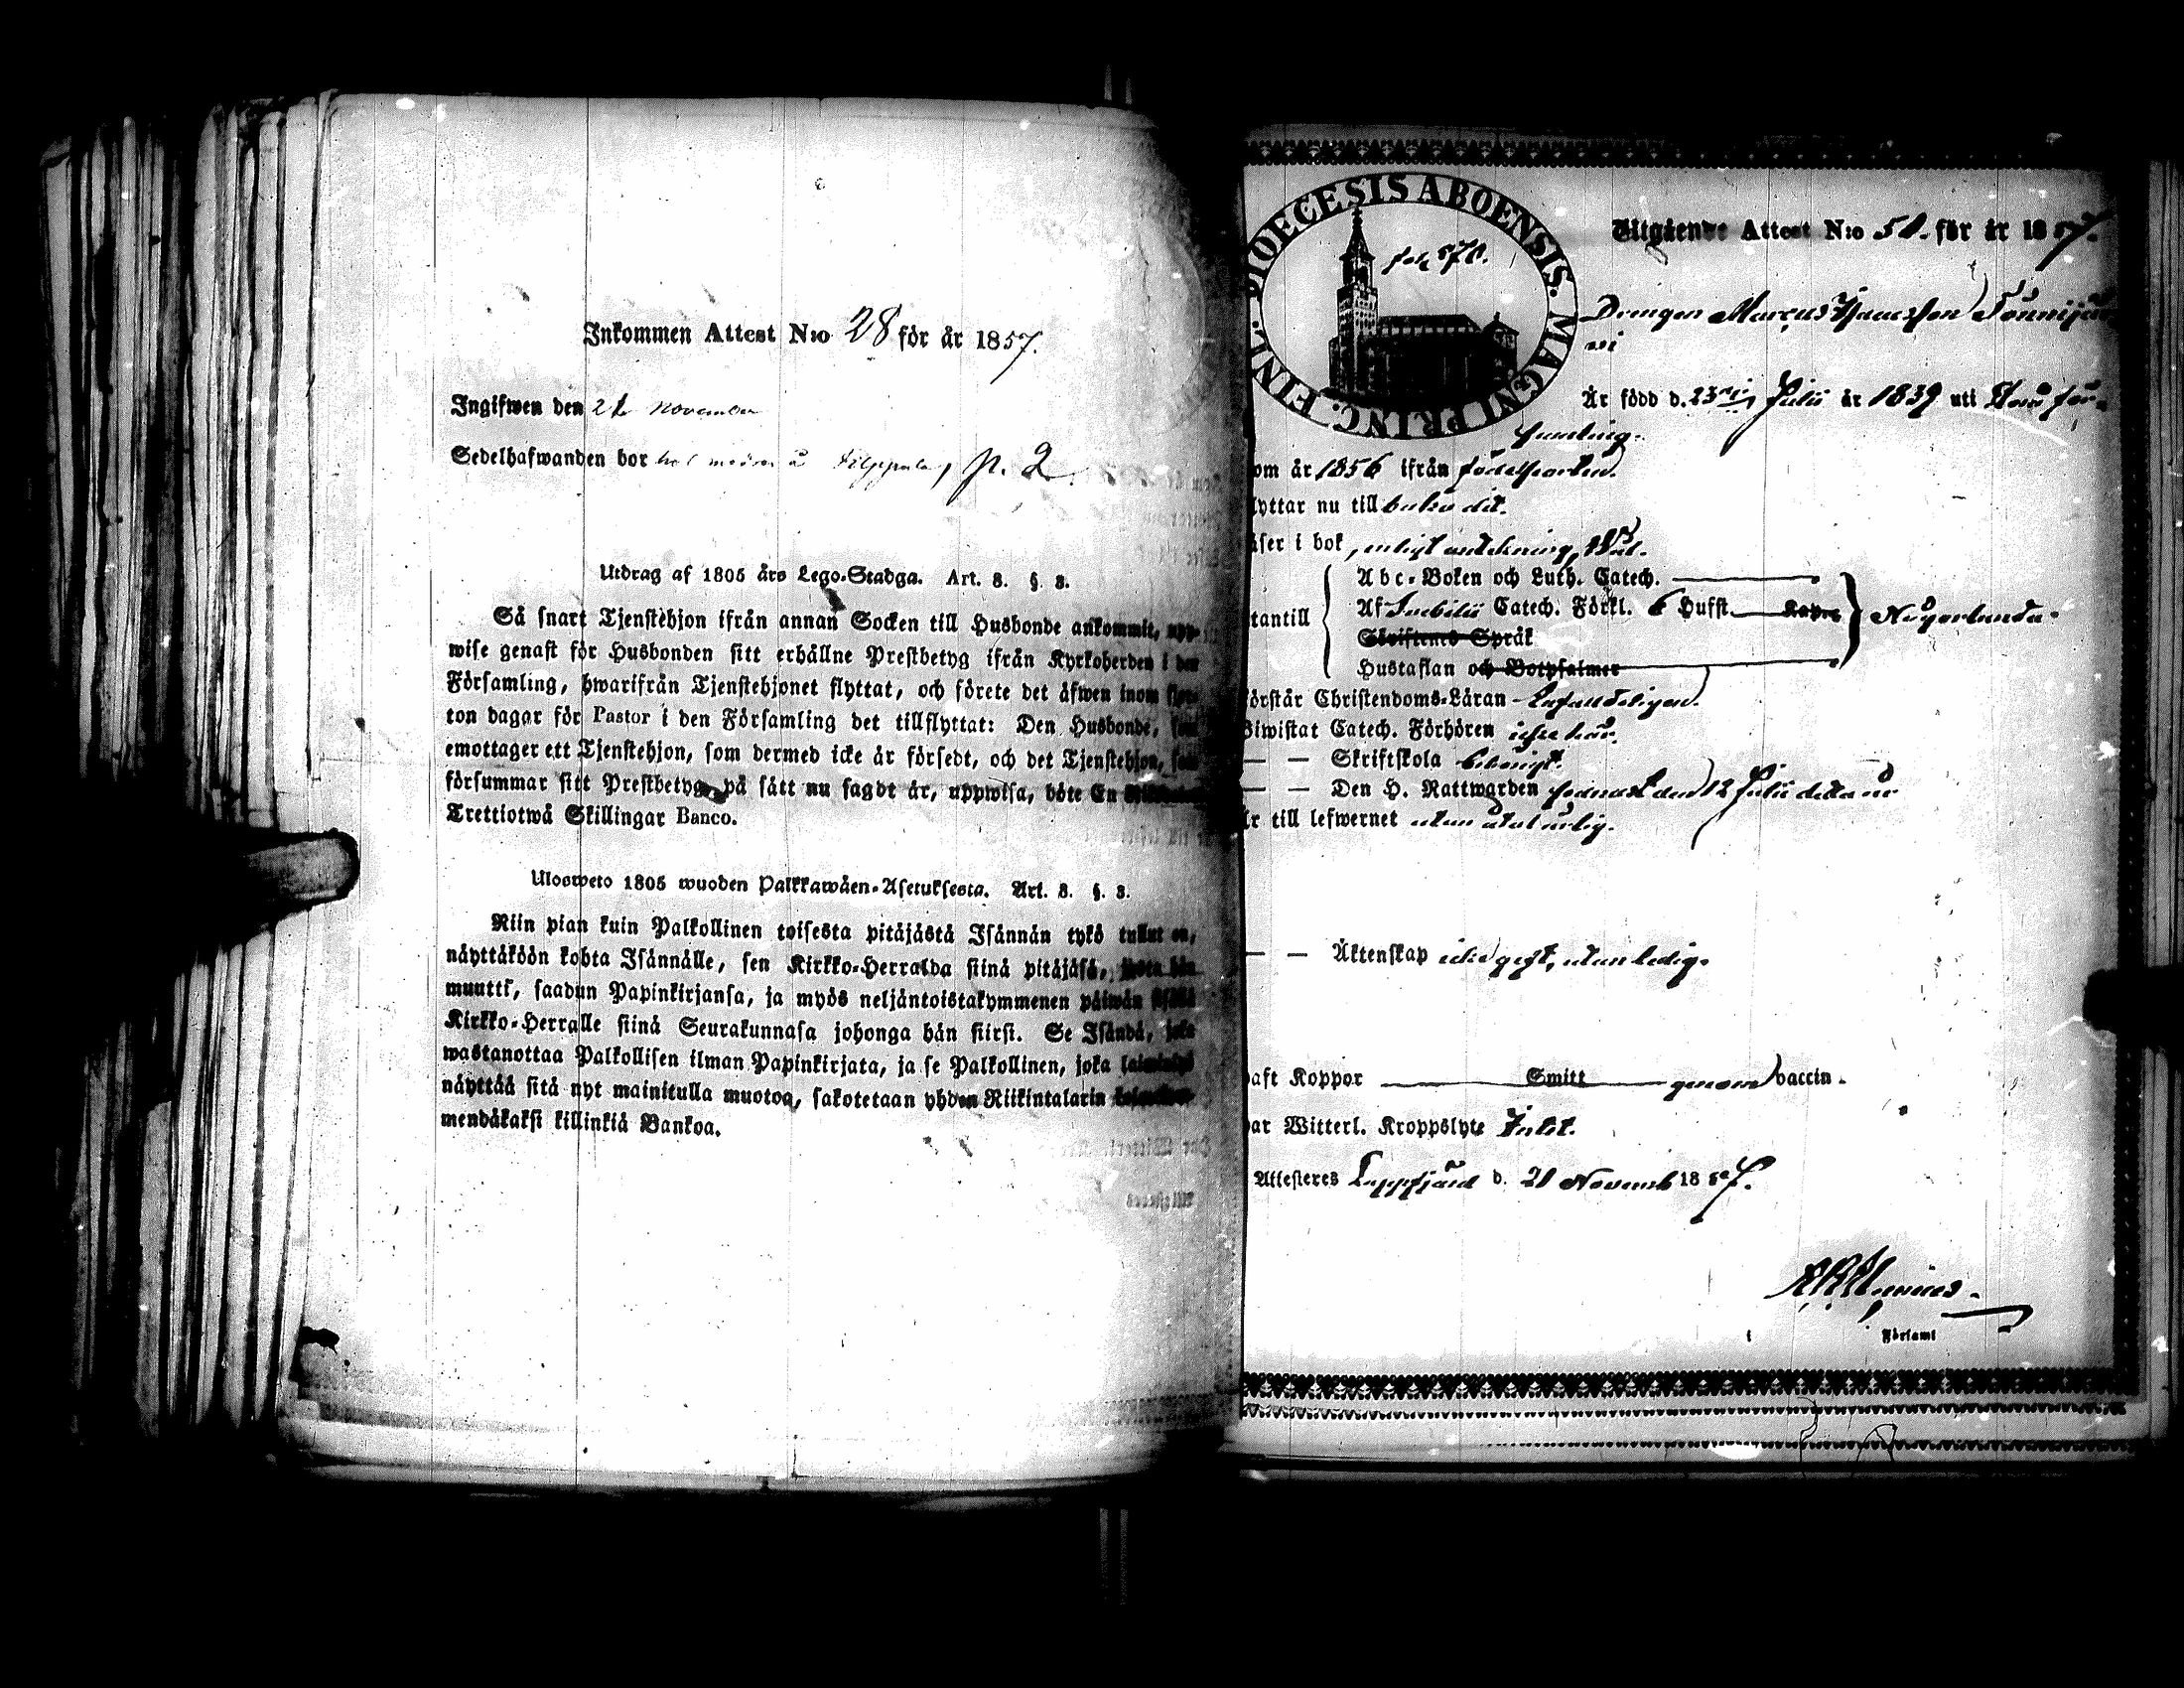 Inkommen Attest N:o 28 för år 1857.
Ingifwen den November
Sedelhafwanden bor hos p. 2
Utdrag af 1805 års Lego-Stadga. Art. 8. §. 3.
Så snart Tjenstehjon ifrån annan Socken till Husbonde ankommit, upp-
wise genast för Husbonden sitt erhållne Prestbetyg ifrån Kyrkoherden i den
Församling, hwarifrån Tjenstehjonet flyttat, och förete det äfwen inom fjor-
ton dagar för Pastor i den Församling det tillflyttat: Den Husbonde, som
emottager ett Tjenstehjon, som dermed icke är försedt, och det Tjenstehjon, som
försummar sitt Prestbetyg, på sätt nu sagdt är, uppwisa, böte En
Trettiotwå Skillingar Banco.
Ulosweto 1805 wuoden Palkkawäen-Asetuksesta. Art. 8. §. 3.
Niin pian kuin Palkollinen toisesta pitäjästä Isännän tykö tullut on,
näyttäköön kohta Isännälle, sen Kirkko-Herralda siinä pitäjäsä, josta hän
muutti, saadun Papinkirjansa, ja myös neljäntoistakymmenen päiwän
Kirkko-Herralle siinä Seurakunnasa johonga hän siirsi. Se Isändä, joka
wastanottaa Palkollisen ilman Papinkirjata, ja se Palkollinen, joka
näyttää sitä nyt mainitulla muotoa, sakotetaan yhden Riikintalarin
mendäkaksi killinkiä Bankoa.
DIOECESIS ABOENSIS. MAGNI PRINC. FINL.
fol. 570.
Utgående Attest N:o 51. för år 1857.
Drengen Marcus
Är född d. 23 Julii år 1839 uti för-
samling.
om år 1856 ifrån födelseorten.
lyttar nu till dit.
äser i bok, enligt antekning, väl.
Abc-Boken och Luth. Catech.
tantill Af Svebilii Catech. Förkl. 6 Hufst. Kap:s Någorlunda.
Skriftenes Språk
Hustaflan och Botpsalmer
örstår Christendoms-Läran
Biwistat Catech. Förhören icke här.
— — Skriftskola bewistat.
— — Den H. Nattwarden sednast den 12 Julii detta år
r till lefwernet utan
— — Äktenskap icke gift, utan ledig.
aft Koppor Smitt genom vaccin.
ar Witterl. Kroppslyte Intet.
Attesteres Lappfjärd d. 21 Novemb 1857.
Församl